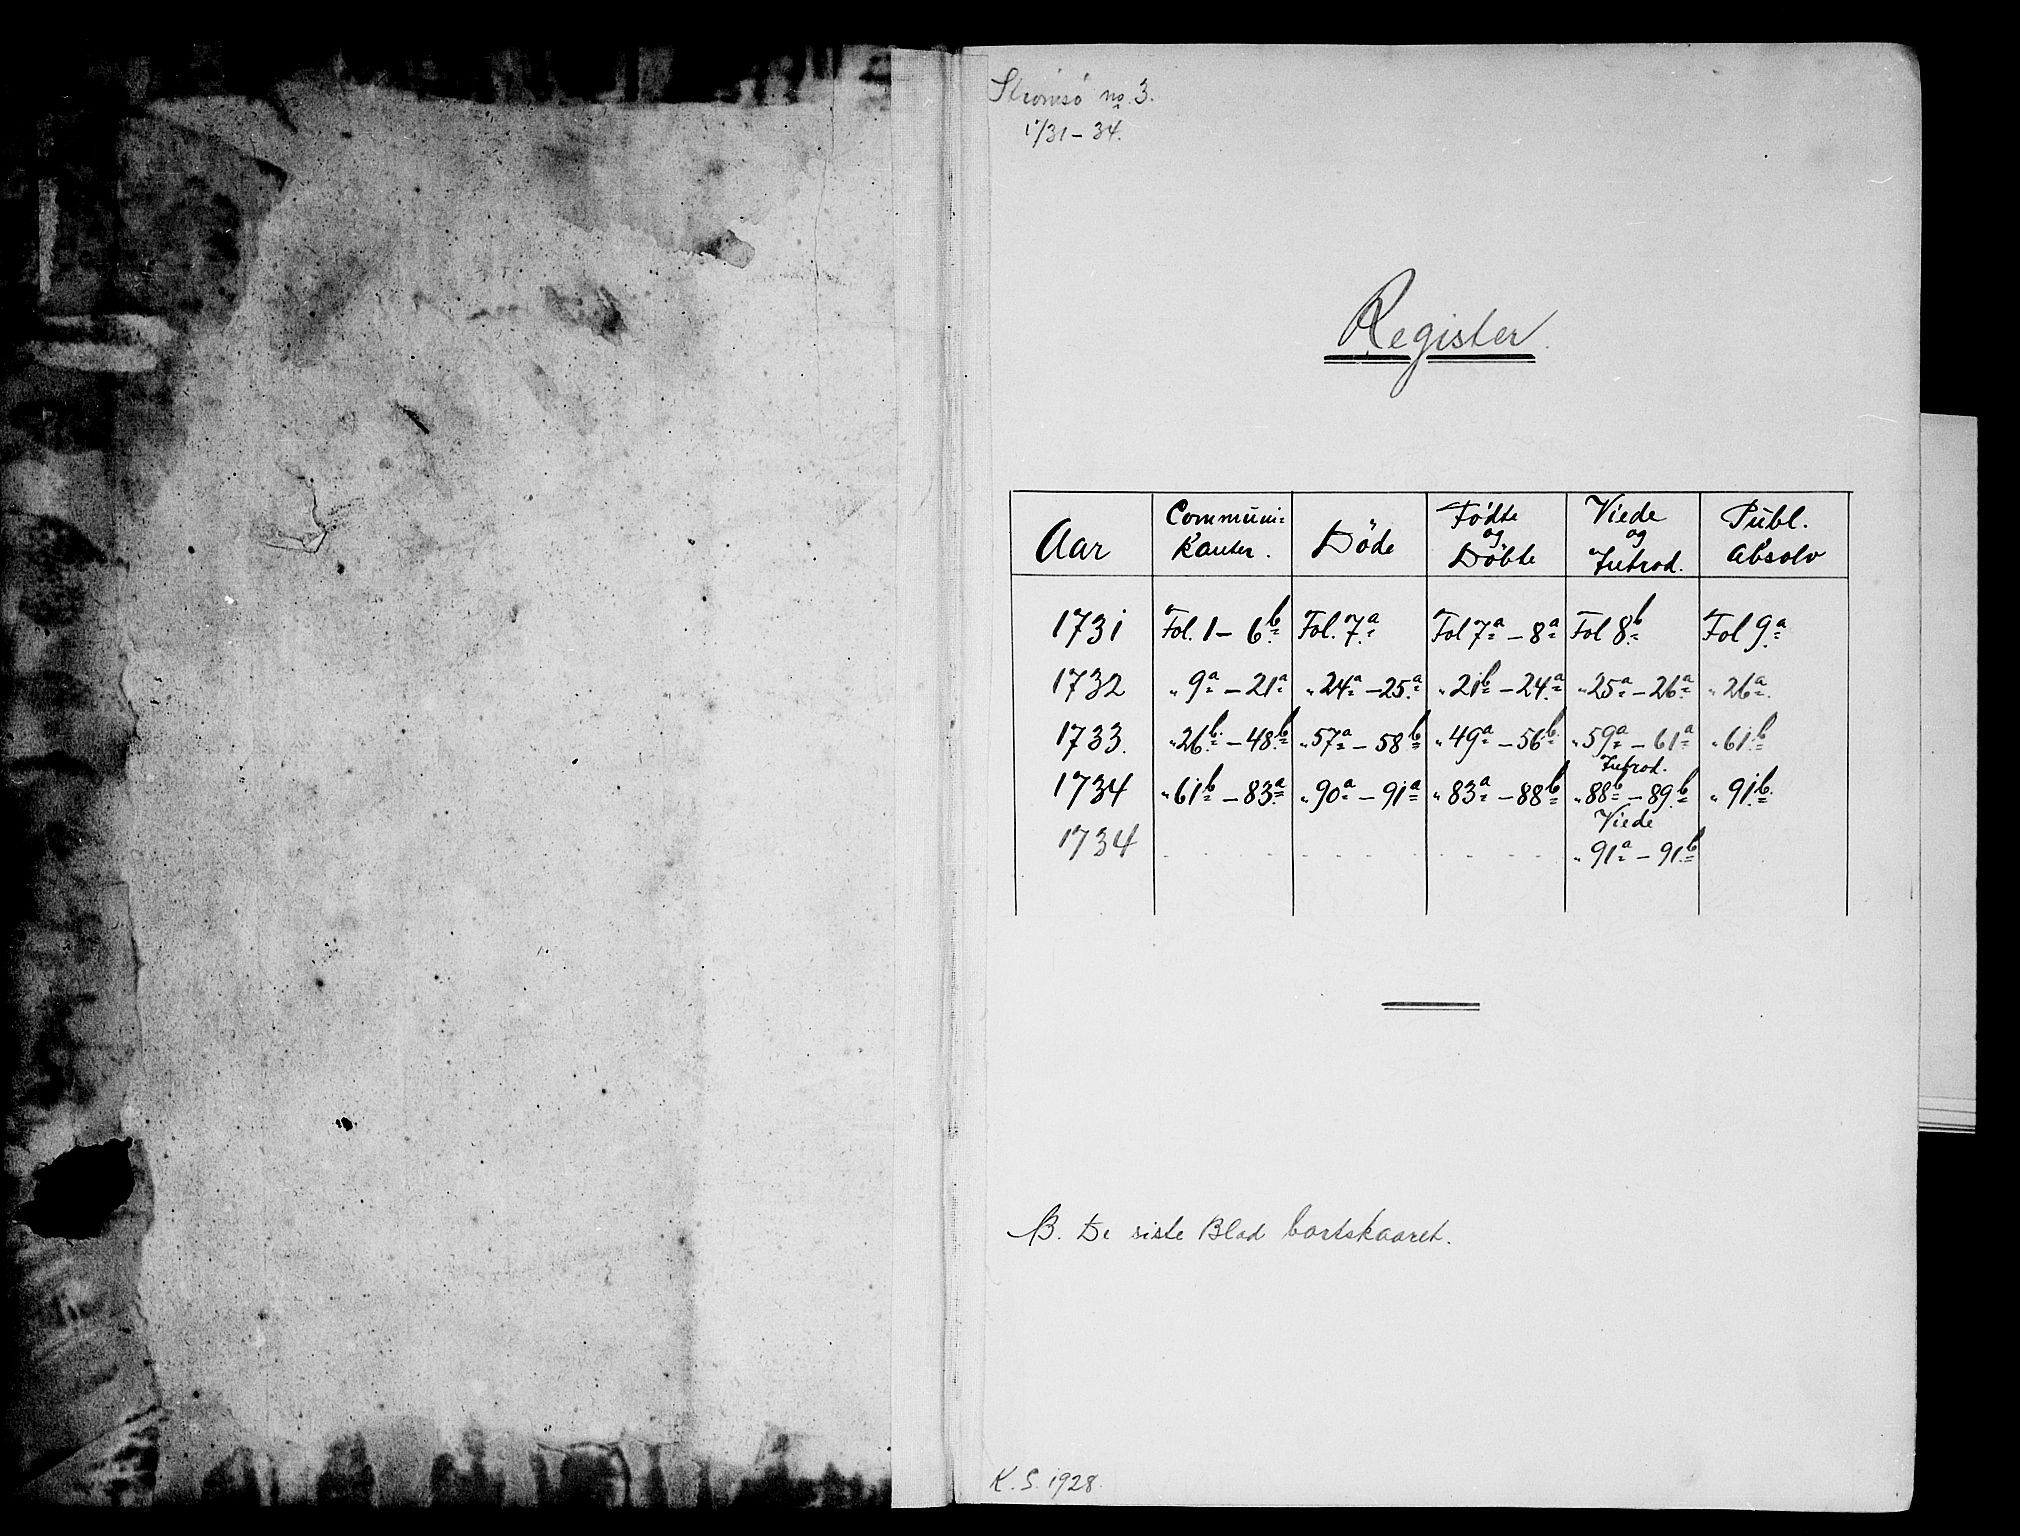 Strømsö no. 3.
1731-34.
Register.
Aar Communi= kanter. Döde Födte og Döbte Viede og Introd. Publ. Absolv
1731 Fol. 1 - 6b Fol. 7a Fol 7a - 8a Fol 8b Fol 9a
1732 " 9a - 21a " 24a - 25a " 21b - 24a " 25a - 26a " 26a
1733. " 26b - 48b " 57a - 58b " 49a - 56b " 59a - 61a " 61b
1734 " 61b - 83a " 90a - 91a " 83a - 88b Introd. " 88b - 89b " 91b
1734 Viede " 91a - 91b
NB. De siste Blad bortskaaret.
K. S. 1928.